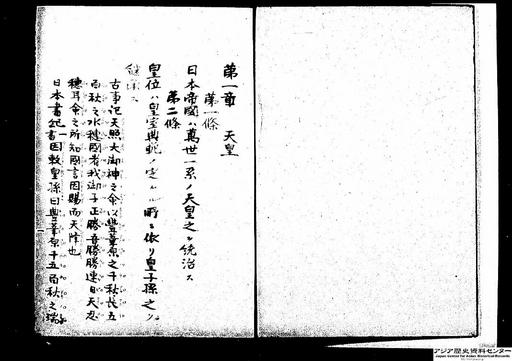 第一章 天皇
第一條
日本帝國ハ萬世一系ノ天皇之ヲ統治ス
第二條
皇位ハ皇室典範ノ定ムル所ニ依リ皇子孫之ヲ
継承ス
古事記天照大御神之命以豊葦原之千秋長五
百秋之水穂國者我御子正勝吾勝勝速日天忍
穂耳命之所知國言因賜而天降也
日本書紀一書因敕皇孫曰葦原千五百秋之瑞
アジア歴史資料センター
Japan Center for Asian Historical Records